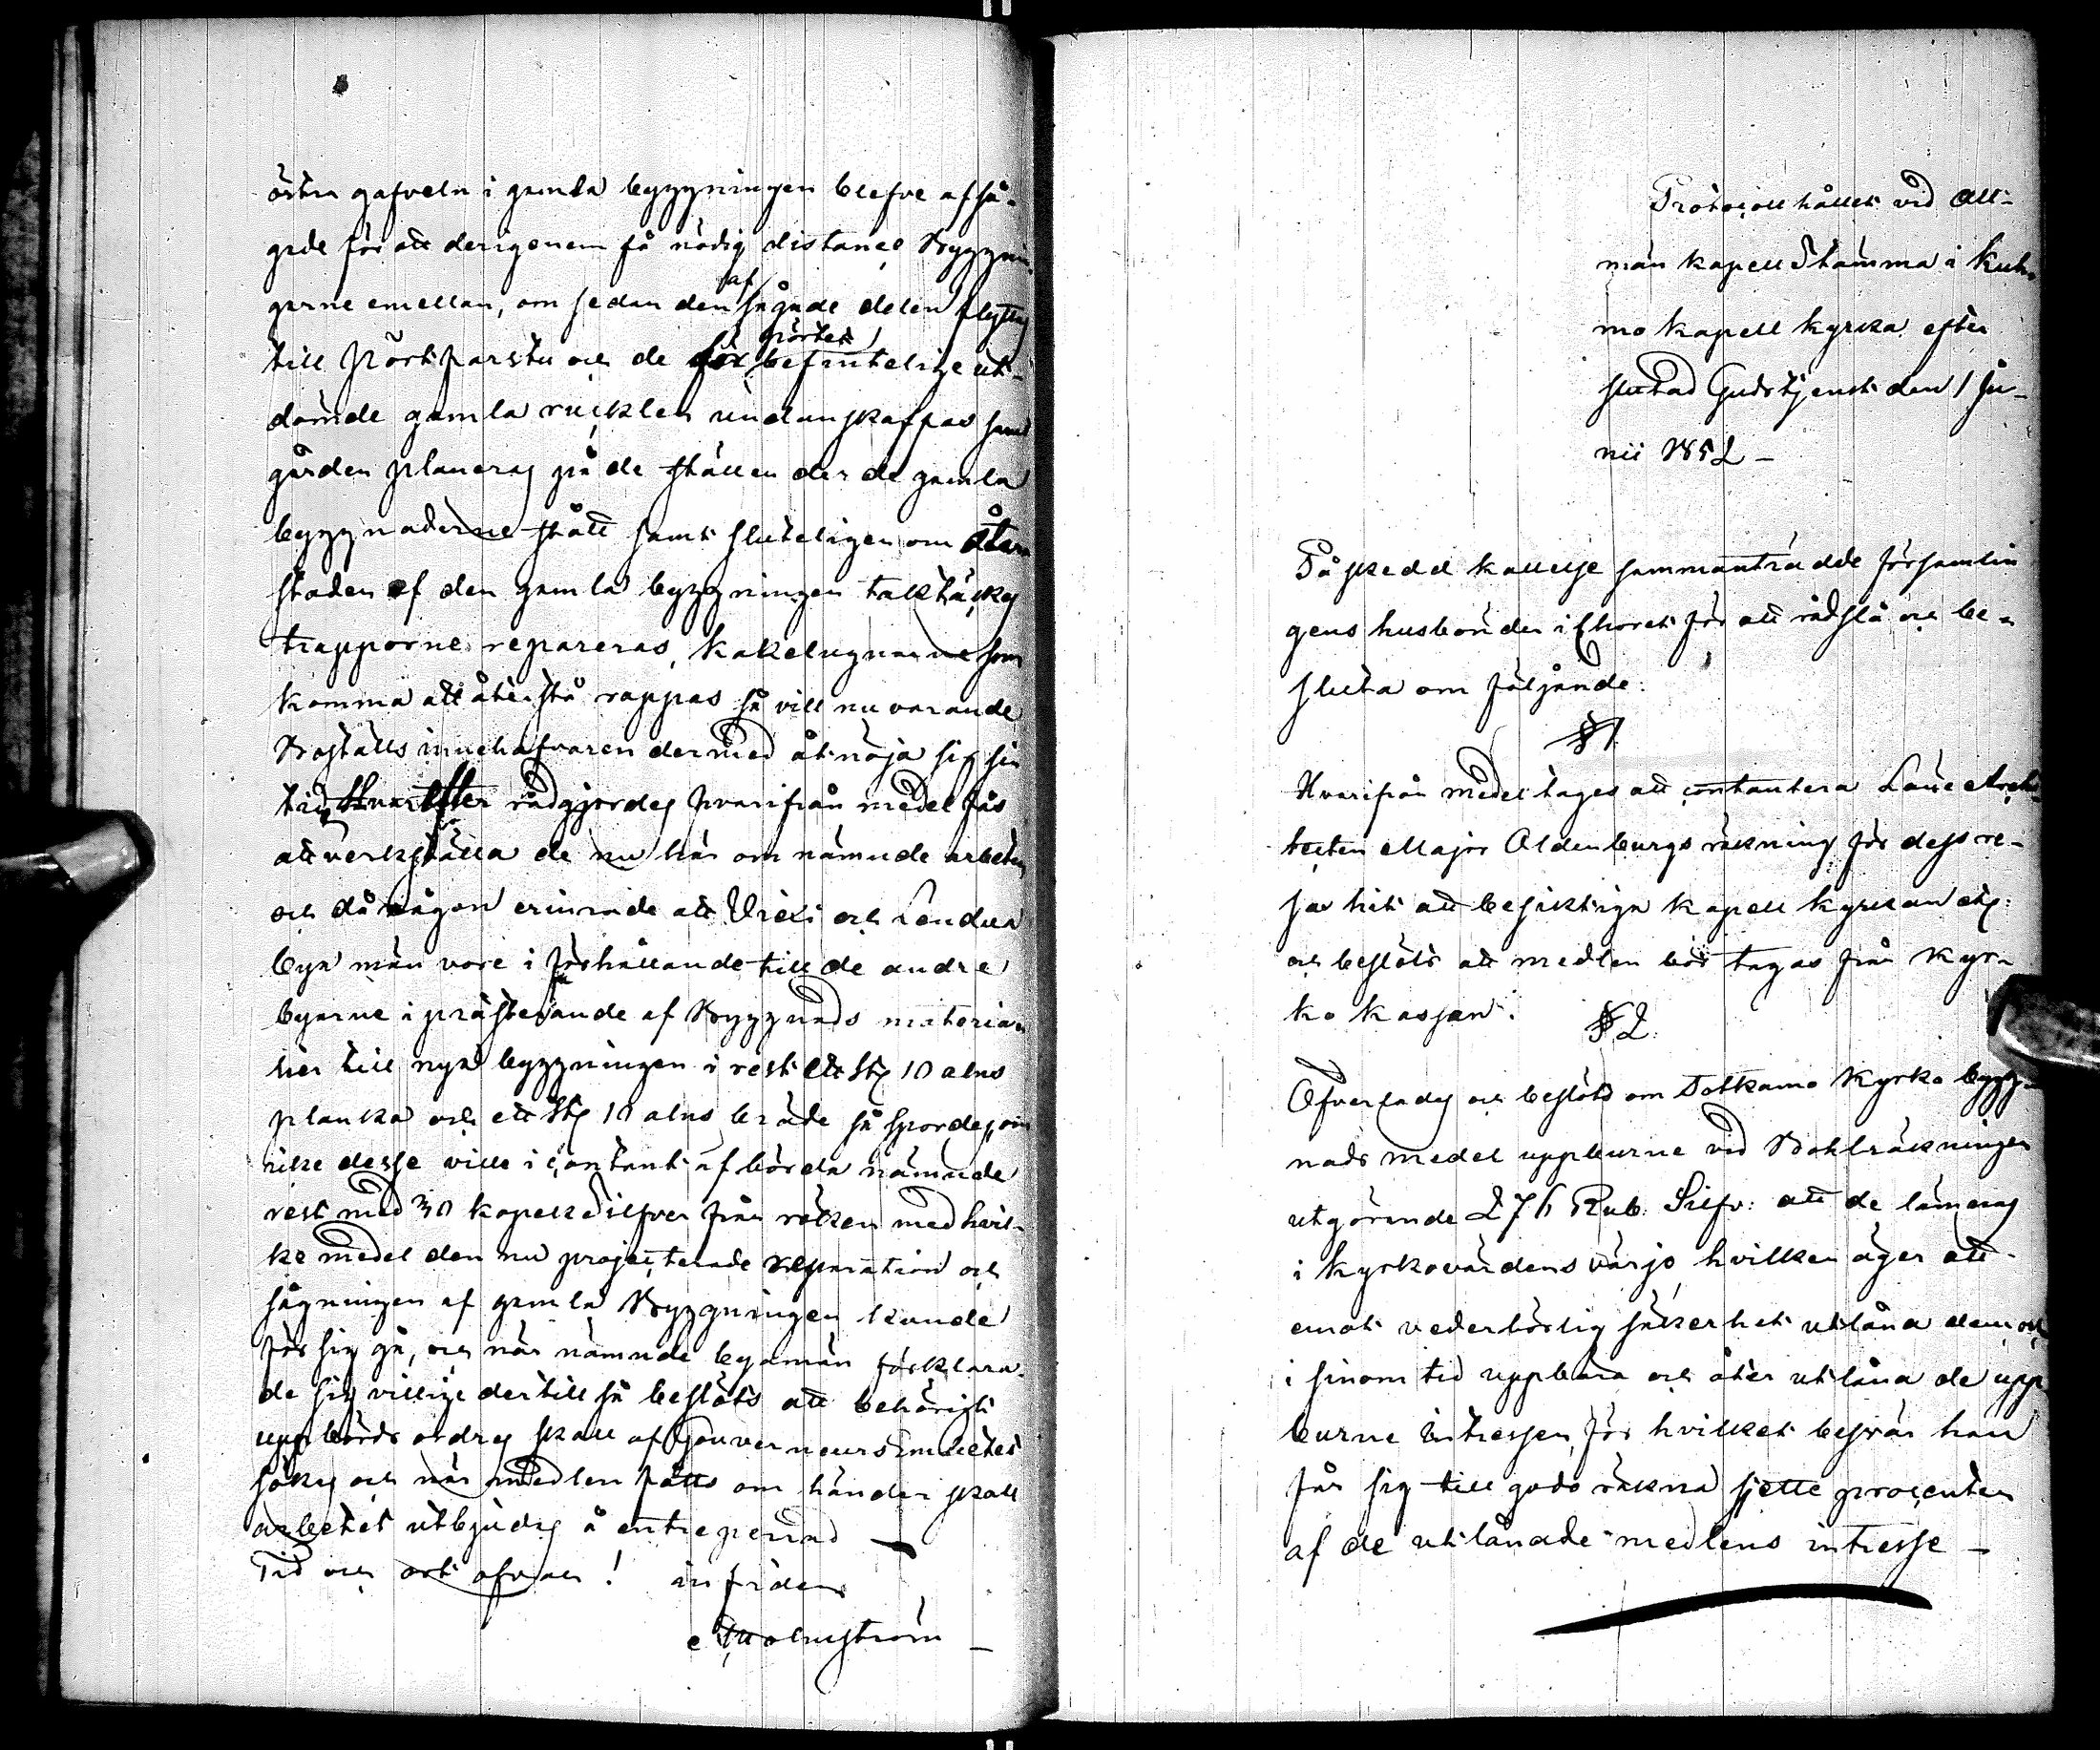 östra gafveln i gamla byggningen blefve afså-
gade för att derigenom få nödig distance Byggnin-
garne emellan, om sedan den af sågade delen flyttas
till pörtfarstu och de för pörtet befintelige ut-
dömde gamla rucklen undanskaffas samt
gården planeras på de ställen der de gamla
byggnaderne stått samt sluteligen om åter-
stoden af den gamla byggningen taktäckes
trapporne repareras, kakelugnarne som
komma att återstå rappas så vill nu varande
Boställs innehafvaren dermed åtnöja sig sin
tid, Hvarefter rådgjordes hvarifrån medel fås
att verkställa de nu här om nämnde arbeten
och då någon erinrade att Vieksi och Lendua
bya män vore i förhållande till de andre
byarne i præsterande af Byggnads materia-
lier till nya byggningen i rest Ett st 10 alns
planka och ett st 10 alns bräde så spordes, om
icke desse ville i contant afbörda nämnde
rest med 30 kopek Silfver från röken med hvil-
ke medel den nu projecterade reparation och
sågningen af gamla Byggningen kunde
för sig gå, och när nämnde byamän förklara-
de sig villige dertill så beslöts att behörigt
uppbörds ordres skall af Gouverneurs Embetet
sökes och när medlen fåtts om händer skall
arbetet utbjudas å entreprenad —
Tid och ort ofvan! in fidem
Holmström —
Protocoll hållet vid All-
män kapell Stämma i Kuh-
mo kapell kyrka efter
slutad Gudstjenst den 1 Ju-
nii 1852 —
På skedd kallelse sammanträdde församlin
gens husbönder i Choret för att rådslå och be-
sluta om följande:
§ 1.
Hvarifrån medel tages att contantera Lane Archi-
tecten Major Oldenburgs räkning för dess re-
sa hit att besiktiga kapell kyrkan etc:
och beslöts att medlen bör tagas från Kyr-
ko kassan.
§ 2.
Öfverlades och beslöts om Sotkamo Kyrko bygg-
nads medel uppburne vid Bohlräkningen
utgörande 276 Rub. Silfv: att de lämnas
i kyrkovärdens värjo hvilken äger att
emot vederbörlig säkerhet utlåna dem och
i sinom tid uppbära och åter utlåna de upp
burne intressen, för hvilket besvär han
får sig till godo räkna sjette procenten
af de utlånade medlens intresse —